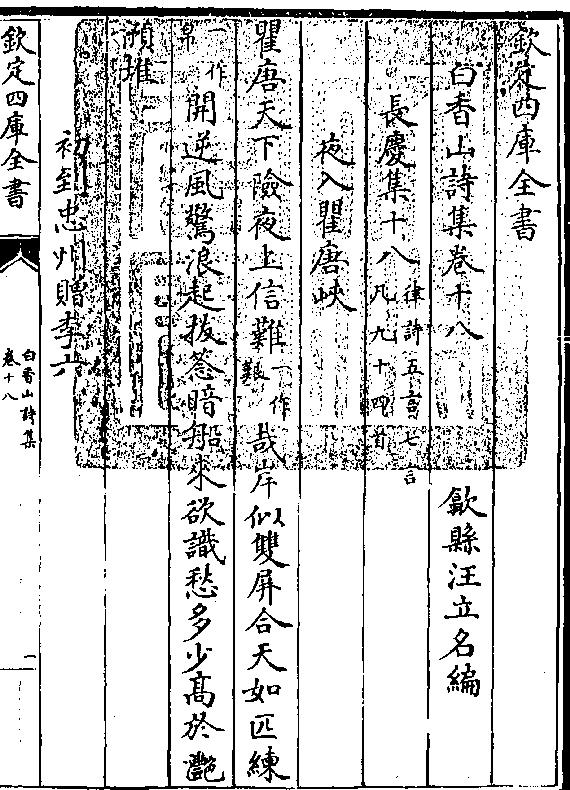 欽定四庫全書
白香山詩集卷十八
歙縣汪立名編
長慶集十八
律詩五言七言
凡九十四首
夜入瞿唐峽
瞿唐天下險夜上信難
一作
艱
哉岸似雙屏合天如匹練
一作
帛
開逆風驚浪起拔䈴暗船來欲識愁多少高於灎
澦堆
初到忠州贈李六
欽定四庫全書
白香山詩集
卷十八
一